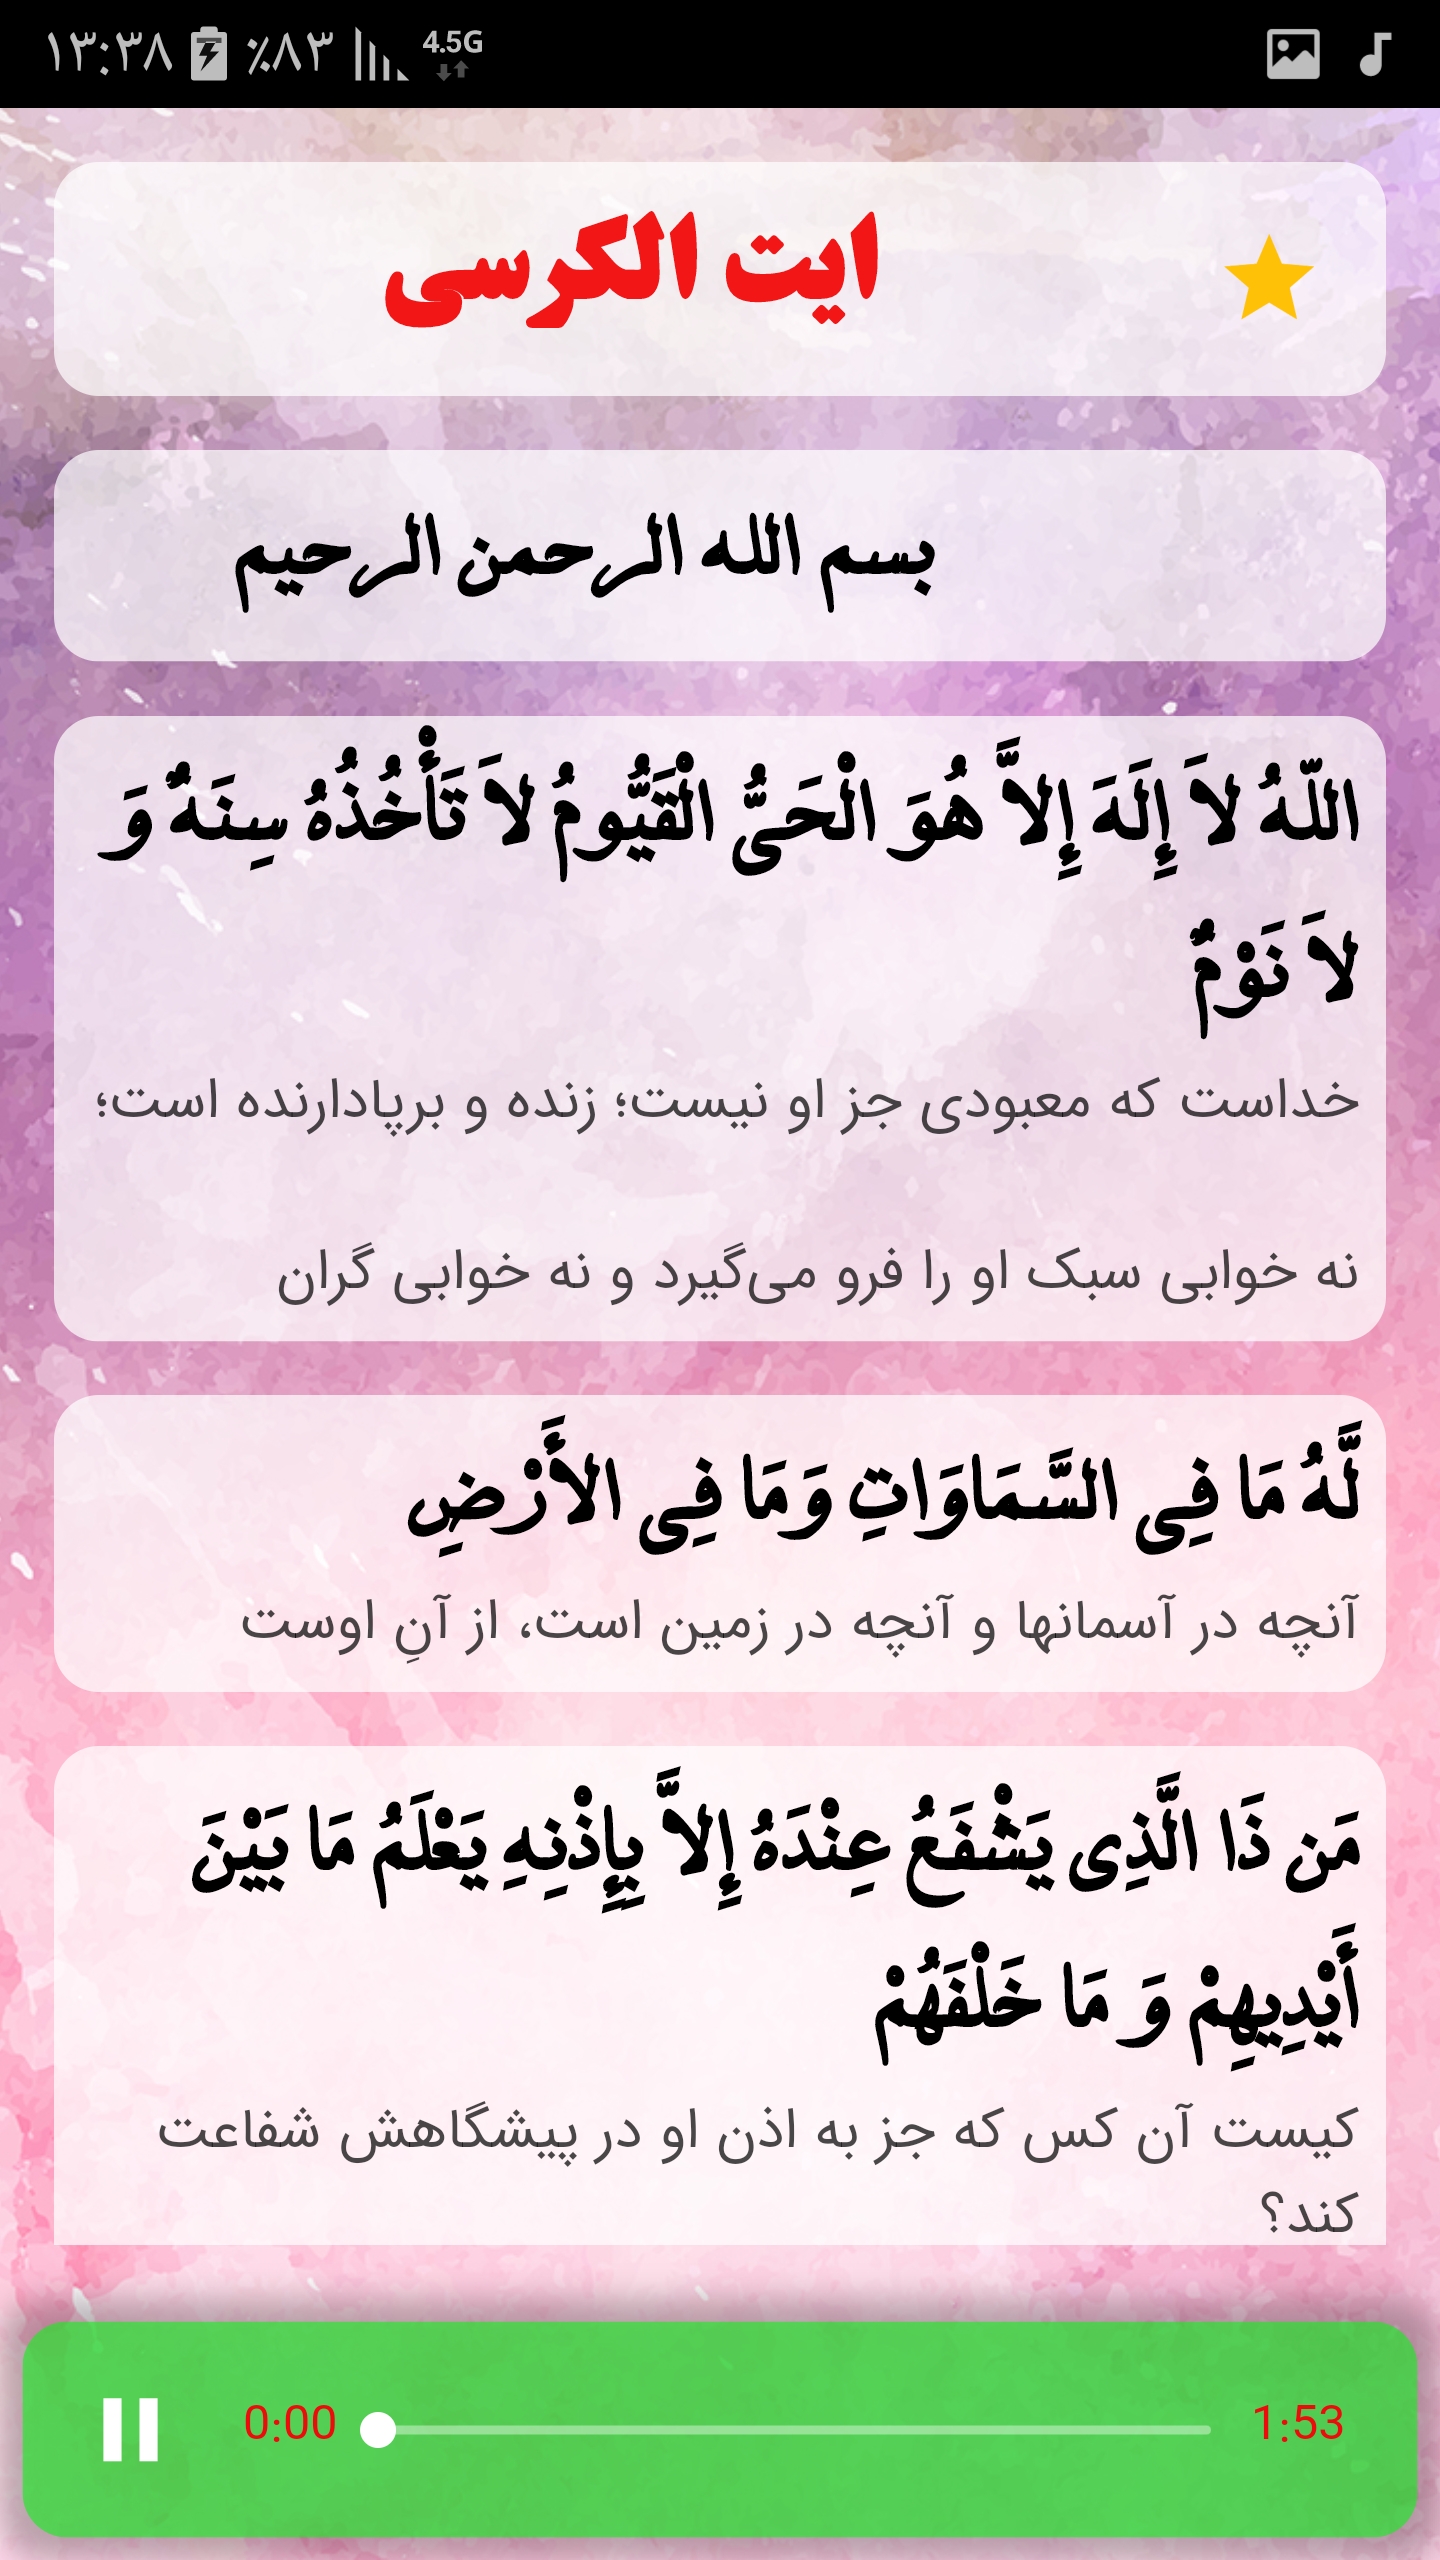 ۱۳:۳۸ ٪۸۳ 4.5G
ایت الکرسی
بسم الله الرحمن الرحیم
اللّهُ لاَ إِلَهَ إِلاَّ هُوَ الْحَیُّ الْقَیُّومُ لاَ تَأْخُذُهُ سِنَهٌ وَ
لاَ نَوْمٌ
خداست که معبودی جز او نیست؛ زنده و برپادارنده است؛
نه خوابی سبک او را فرو می‌گیرد و نه خوابی گران
لَّهُ مَا فِی السَّمَاوَاتِ وَمَا فِی الأَرْضِ
آنچه در آسمانها و آنچه در زمین است، از آنِ اوست
مَن ذَا الَّذِی یَشْفَعُ عِنْدَهُ إِلاَّ بِإِذْنِهِ یَعْلَمُ مَا بَیْنَ
أَیْدِیهِمْ وَ مَا خَلْفَهُمْ
کیست آن کس که جز به اذن او در پیشگاهش شفاعت
کند؟
0:00 1:53